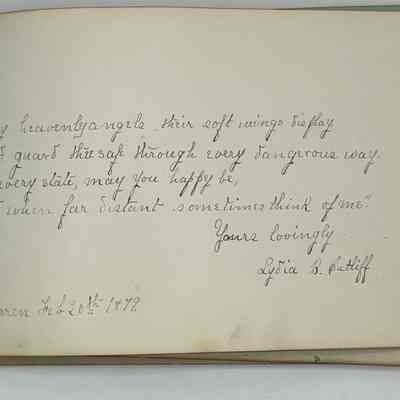 y heavenly angels their soft wings display
guard thee safe through every dangerous way.
every state, may you happy be,
when far distant sometimes think of me."
Yours lovingly
Lydia B. Ratliff
ren Feb 20th 1879